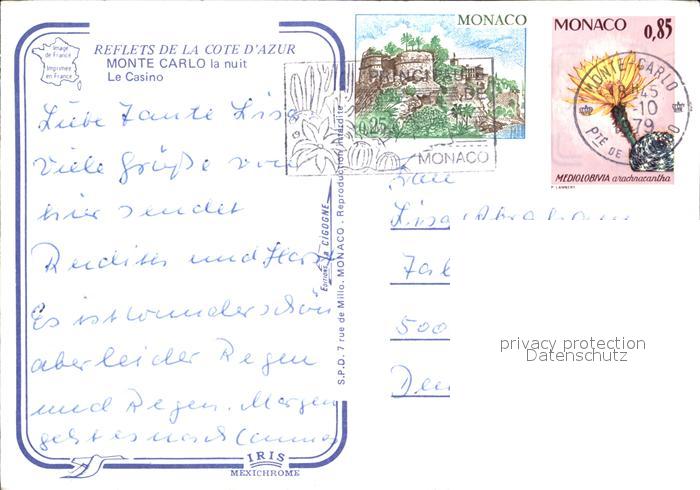 Image
de France
Imprimée
en France
REFLETS DE LA COTE D'AZUR
MONTE CARLO la nuit
Le Casino
Liebe Tante Lisa
Viele Grüße von
hier sendet
und Horst
Es ist wunderschön
aber leider Regen
und Regen. Morgen
geht es nach
Editions "La CIGOGNE"
S.P.D. 7 rue de Millo. MONACO - Reproduction interdite
IRIS
MEXICHROME
MONACO
0,25
PRINCIPAUTE
DE
MONACO
MONACO
0,85
MONTE-CARLO
18H45
-10
79
PTE DE
MEDIOLOBIVIA arachnacantha
P. LAMBERT
Lisa
500
privacy protection
Datenschutz